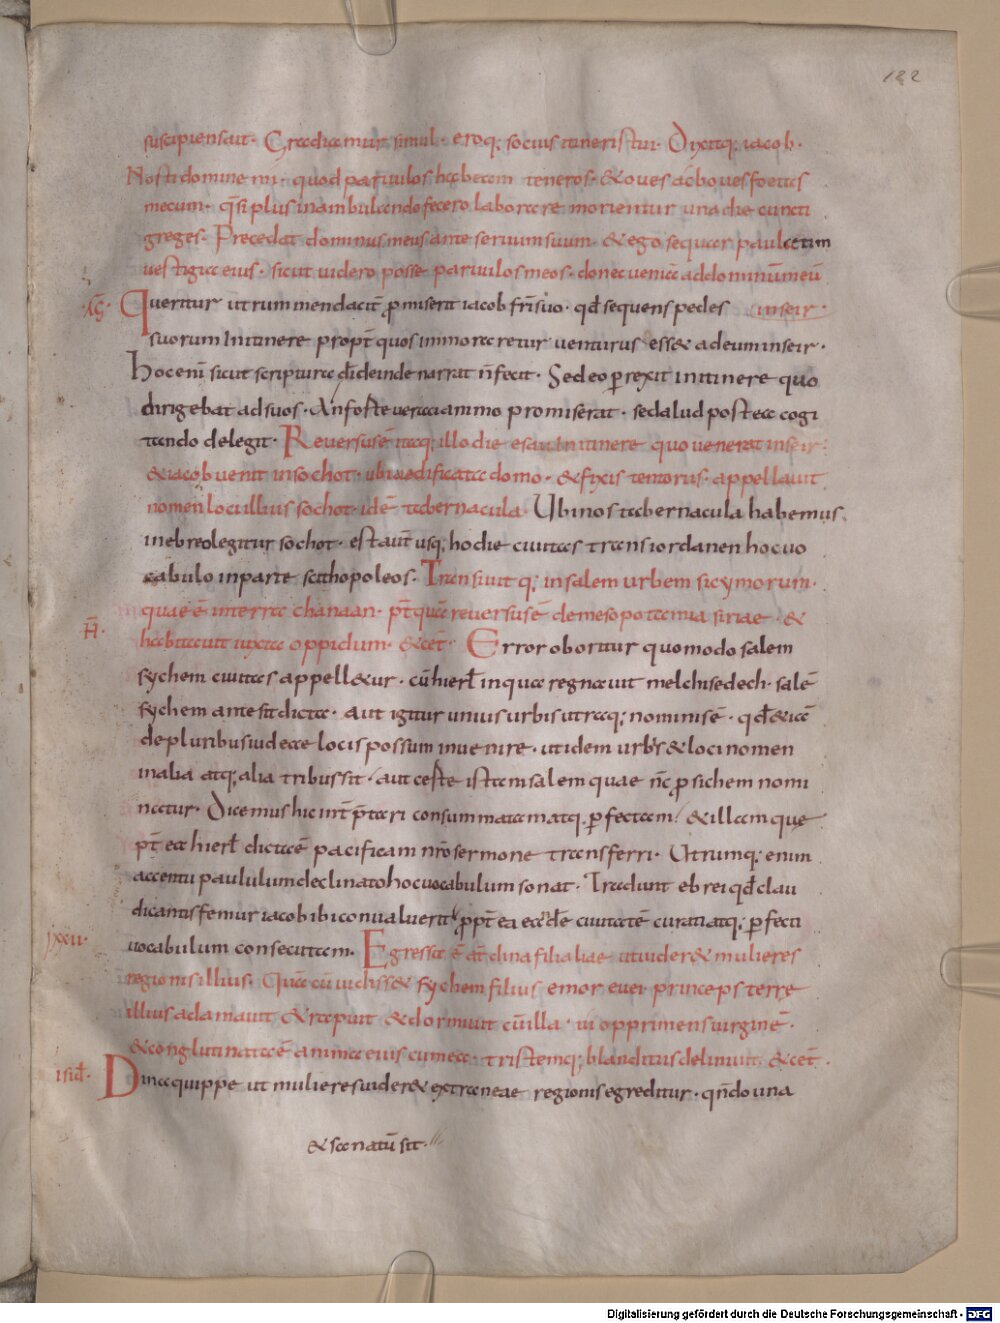 122
suscipiensait. Gradiamur simul. eroq; socius itineris tui. Dixitq; iacob.
Nosti domine mi. quod parvulos habeam teneros. & oves ac boves foetas
mecum. q̄si plus in ambulando fecero laborare morientur una die cuncti
greges. Precedat dominus meus ante servum suum. & ego sequar paulatim
vestigia eius. sicut videro posse parvulos meos. donec veniā ad dominū meū
Queritur utrum mendaciū promiserit iacob fr̄i suo. qđ sequens pedes in seir.
suorum In itinere propt̄ quos immoraretur venturus ess& ad eum in seir.
hoc enī sicut scriptura dī deinde narrat n̄ fecit. Sed eo perrexit in itinere quo
dirigebat ad suos. An forte veraci animo promiserat. sed alud postea cogi
tando delegit. Reversus ē itaq; illo die esau In itinere quo venerat in seir.
& iacob venit in sochot. ubi aedificata domo. & fixis tentorius. appellavit
nomen loci illius sochot. idē tabernacula. Ubi nos tabernacula habemus.
in ebreo legitur sochot. est aut̄ usq; hodie civitas trans iordanen hoc vo
cabulo in parte scithopoleos. Transivit q; in salem urbem sicymorum.
quae ē in terra chanaan. pt̄ quā reversus ē de mesopotamia siriae. &
habitavit iuxta oppidum. & cet̄. Error oboritur quomodo salem
sychem civitas appell&ur. cū hierł in qua regnavit melchisedech. salē
sychem ante sit dicta. Aut igitur unius urbis utraq; nominis ē. qđ & iā
de pluribus iudeae locis possum invenire. ut idem urbis & loci nomen
in alia atq; alia tribus sit. aut certe istam salem quae n̄c pro sichem nomi
natur. Dicemus hic int̄ p̄tari consummatam atq. perfectam / & illam que
pt̄ ea hierł dicta ē pacificam nr̄o sermone transferri. Utrumq; enim
accentu paululum declinato hoc vocabulum sonat. Tradunt ebrei qđ clau
dicantis femur iacob ibi convaluerit propt̄ ea eandē civitatē curati atq; perfecti
vocabulum consecutam. Egressa ē aūt dina filia liae ut vider& mulieres
regionis illius. Quā cū vidiss& sychem filius emor evei princeps terre
illius adamavit & rapuit & dormivit cū illa. vi opprimens virginē.
& conglutinata ē anima eius cum ea. tristemq; blanditiis delinivit. & cet̄.
isiđ. Dina quippe ut mulieres vider& extraneae regionis egreditur. qn̄do una
& sanatū sit.
Digitalisierung gefördert durch die Deutsche Forschungsgemeinschaft - DFG